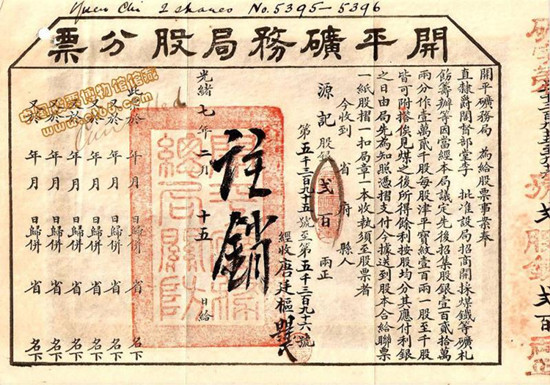 Yuen Chi 2 shares No. 5395-5396
開平礦務局股分票
開平礦務局 為給股票事案奉
直隸爵閣督部堂李 批准設局招商開採煤鐵等礦札
飭籌辦等因當經本局議定先後招集股銀壹百貳拾萬
兩分作壹萬貳千股每股津平寶紋壹百兩一股至千股
皆可附搭俟見煤之後所得餘利按股均分其應付利銀
之日由局先為知照憑摺支付今據送到股本合給聯票
一紙股摺一扣局章一本收執須至股票者
今收到 省 府 縣人
源記 股份 弍百 兩正
第五千三百九十五號至第五千三百九十六號
經收唐廷樞
註銷
光緒七年二月十五日給
此於 年 月 日歸併 省 名下
又於 年 月 日歸併 省 名下
又於 年 月 日歸併 省 名下
又於 年 月 日歸併 省 名下
又於 年 月 日歸併 省 名下
又於 年 月 日歸併 省 名下